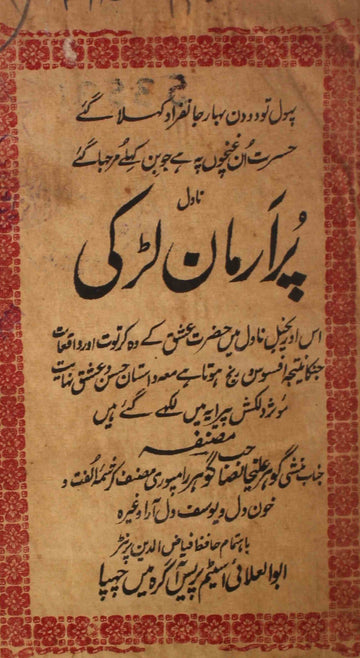 پہول تو دو دن بہار جانفزا دکہلا گئے
حسرت اُن غنچوں پہ ہے جو بن کہلے مرجہا گئے
ناول
پُر اَرمان لڑکی
اس اوریجنل ناول میں حضرت عشق کے وہ کرتوت اور واقعات
جنکا نتیجہ افسوس رنج ہوتا ہے معہ داستان حسن و عشق نہایت
موثر دلکش پیرایہ میں لکھے گئے ہیں
مصنفہ
جناب منشی گوہر علیخانصاحب گوہر رامپوری مصنف کرشمہ الفت و
خون دل و یوسف و دل آرا وغیرہ
باہتمام حافظ فیاض الدین پرنٹر
ابوالعلائی اسٹیم پریس آگرہ میں چہپا